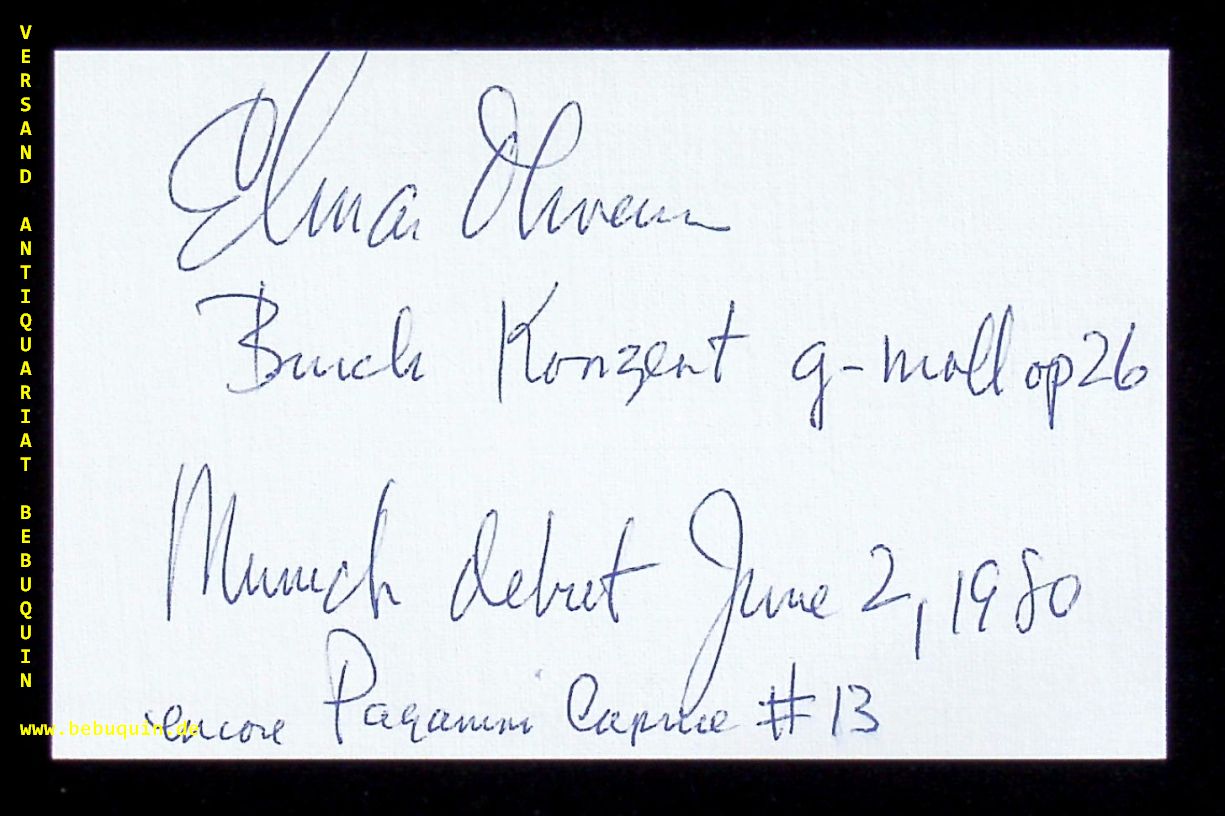 VERSAND ANTIQUARIAT BEBUQUIN
www.bebuquin.de
Elmar Oliveira
Bruch Konzert g-moll op26
Munich debut June 2, 1980
encore Paganini Caprice #13